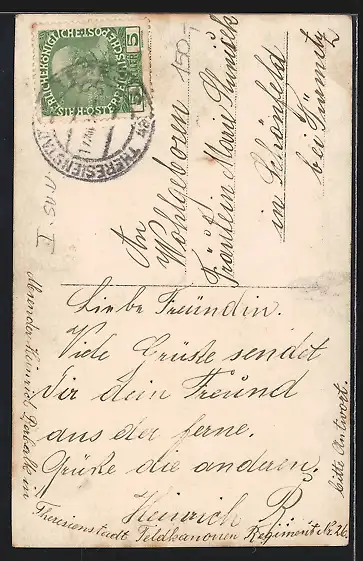 5 HELLER 5
THERESIENSTADT
150-
An
Wohlgeboren
Fräulein Marie
in Schönfeld
bei Türmitz
Liebe Freundin.
Viele Grüße sendet
Dir dein Freund
aus der ferne.
Grüße die anderen.
Heinrich R.
bitte Antwort.
Absender Heinrich in
Theresienstadt Feldkanonen Regiment Nr. 26.